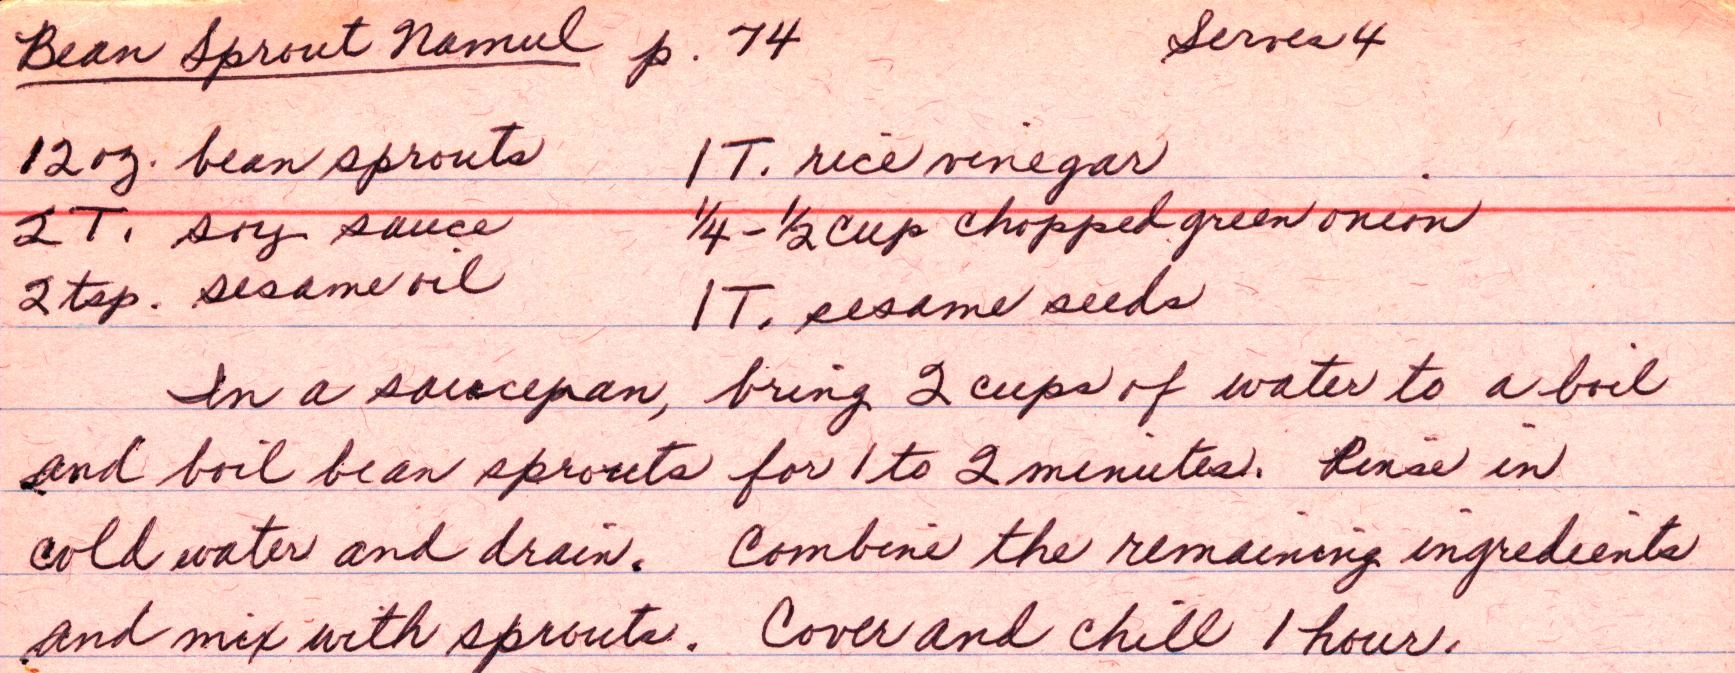 Bean Sprout Namul p. 74 Serves 4
12 oz. bean sprouts 1 T. rice vinegar
2 T. soy sauce 1/4 - 1/2 cup chopped green onion
2 tsp. sesame oil 1 T. sesame seeds
In a saucepan, bring 2 cups of water to a boil
and boil bean sprouts for 1 to 2 minutes. Rinse in
cold water and drain. Combine the remaining ingredients
and mix with sprouts. Cover and chill 1 hour.